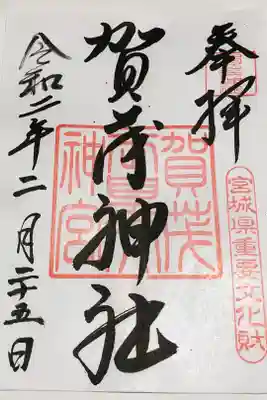 奉拝
宮城県重要文化財
賀茂神社
賀茂
神宮
令和二年二月二十五日